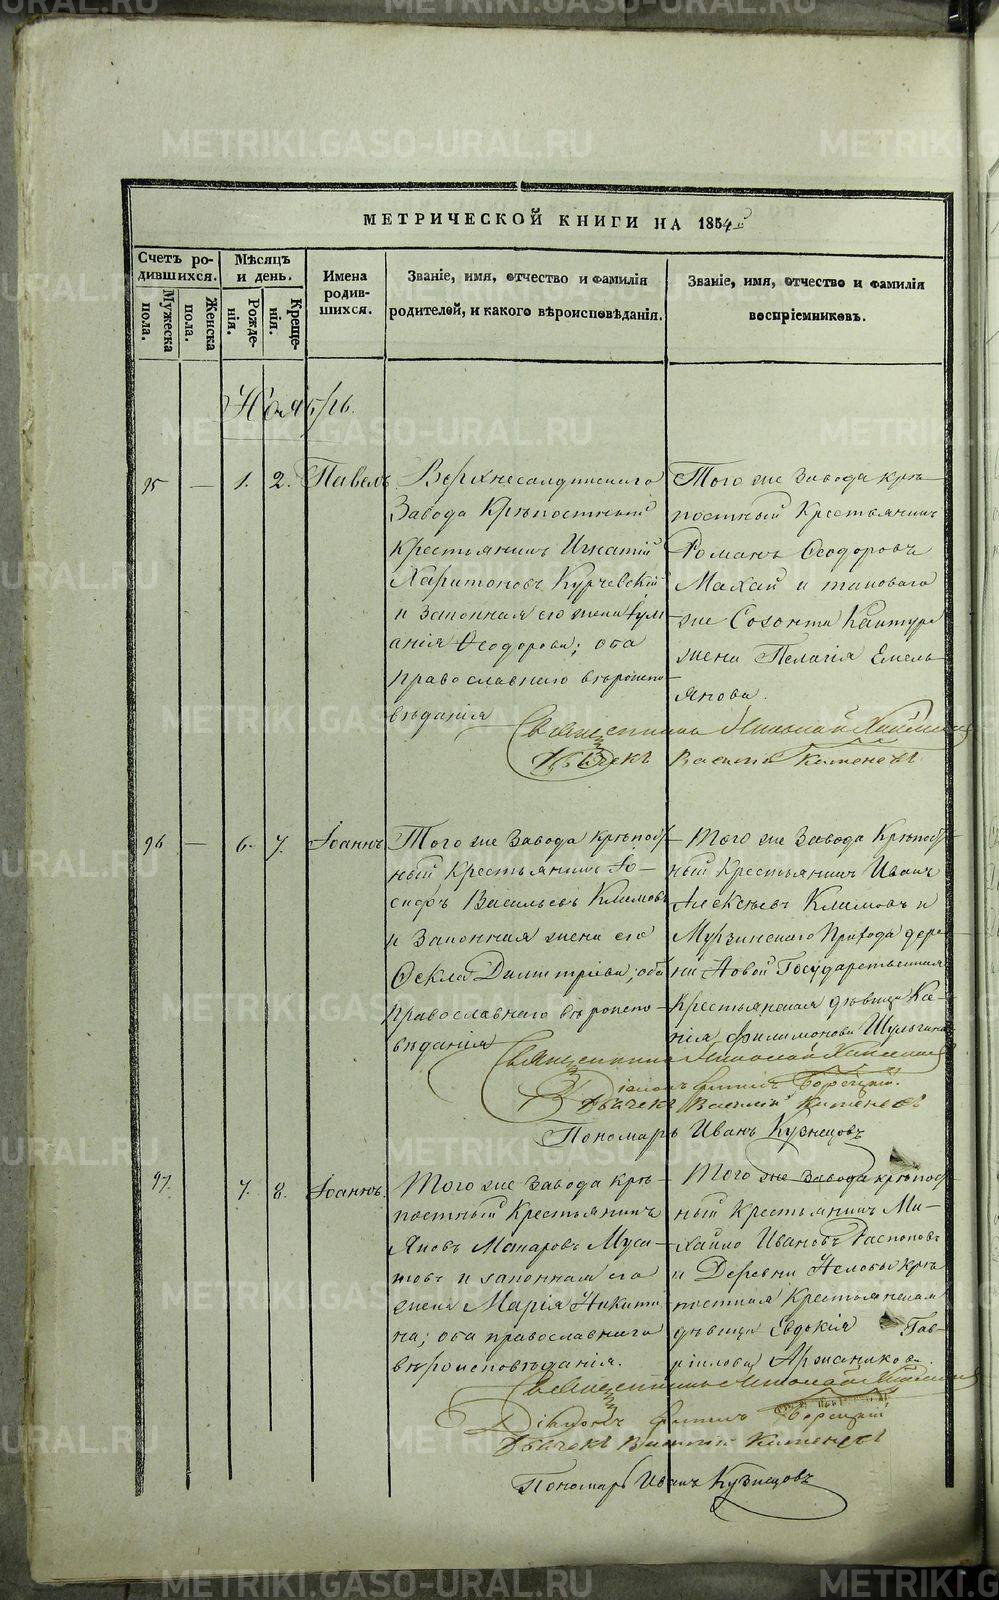 МЕТРИЧЕСКОЙ КНИГИ НА 1854й
Счетъ ро-
дившихся.
Мужеска
пола.
Женска
пола.
Мѣсяцъ
и день.
Рожде-
нія.
Креще-
нія.
Имена
родив-
шихся.
Званіе, имя, отчество и фамилія
родителей, и какого вѣроисповѣданія.
Званіе, имя, отчество и фамилія
воспріемниковъ.
Ноябрь.
95 — 1. 2. Павелъ
Верхнесалдинскаго
Завода Крѣпостный
Крестьянинъ Игнатій
Харитоновъ Курчевскій
и законная его жена
Ѳеодорова; оба
православнаго вѣроиспо-
вѣданія
Того же Завода крѣ-
постный Крестьянинъ
Романъ Ѳеодоровъ
Махай и таковаго
же Созонта Кантура
жена Пелагія Емель-
янова.
Священникъ Николай
Дьячекъ Василій
96 — 6. 7. Іоаннъ
Того же Завода крѣпост-
ный Крестьянинъ Іо-
сифъ Васильевъ Климовъ
и Законная жена его
Ѳекла Димитріева; оба
православнаго вѣроиспо-
вѣданія
Того же Завода Крѣпост-
ный Крестьянинъ Иванъ
Алексѣевъ Климовъ и
Мурзинскаго Прихода дерев-
ни Новой Государственная
Крестьянская дѣвица Ка-
нія Филимонова Шульгина
Священникъ Николай
Діаконъ Борецкій.
Дьячекъ Василій
Пономарь Иванъ Кузнецовъ
97 7. 8. Іоаннъ.
Того же Завода крѣ-
постный Крестьянинъ
Яковъ Макаровъ Муса-
товъ и законная его
жена Марія Никити-
на; оба православнаго
вѣроисповѣданія.
Того же Завода крѣпост-
ный Крестьянинъ Ми-
хайло Ивановъ Распоповъ
и Деревни Нелобы крѣ-
постная Крестьянская
дѣвица Евдокія Гав-
ріилова Аржанникова.
Священникъ Николай
Діаконъ Борецкій
Дьячекъ Василій
Пономарь Иванъ Кузнецовъ
METRIKI.GASO-URAL.RU